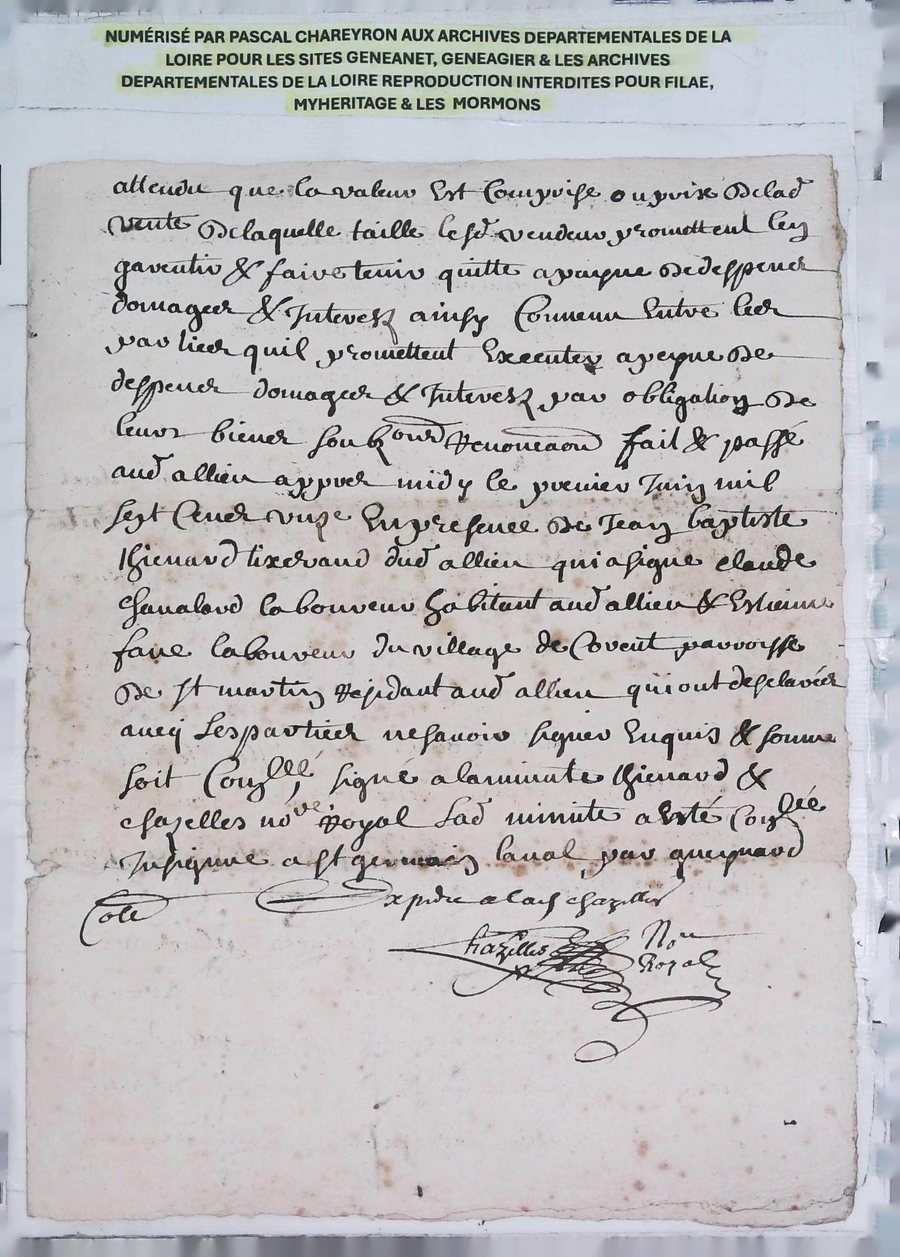 NUMÉRISÉ PAR PASCAL CHAREYRON AUX ARCHIVES DEPARTEMENTALES DE LA
LOIRE POUR LES SITES GENEANET, GENEAGIER & LES ARCHIVES
DEPARTEMENTALES DE LA LOIRE REPRODUCTION INTERDITES POUR FILAE,
MYHERITAGE & LES MORMONS
attendu que la valeur Est Comprise ou prix De lad
vente De laquelle taille lesd vendeur promettent
garentir & faire tenir quitte a payne De despences
domages & Interestz ainsy Convenu Entre les
parties quil promettent Executer a peyne De
despences domages & Interestz par obligation De
leurs biens fait & passé
aud allieu appres midy le premier Juin mil
sept Cents unze En presence De Jean baptiste
thienard tixerand dud allieu qui a signe claude
chanalard laboureur habitant aud allieu & Estienne
fare laboureur du village de Corent parroisse
De st martin Residant aud allieu qui ont desclarés
avecq Les parties ne savoir signer Enquis &
soit signé a la minute thienard &
chazelles Royal Lad minute a Esté
Insignue a st germain laval par gueynard
Colle Expedie chazelles
Chazelles Nore
Royal